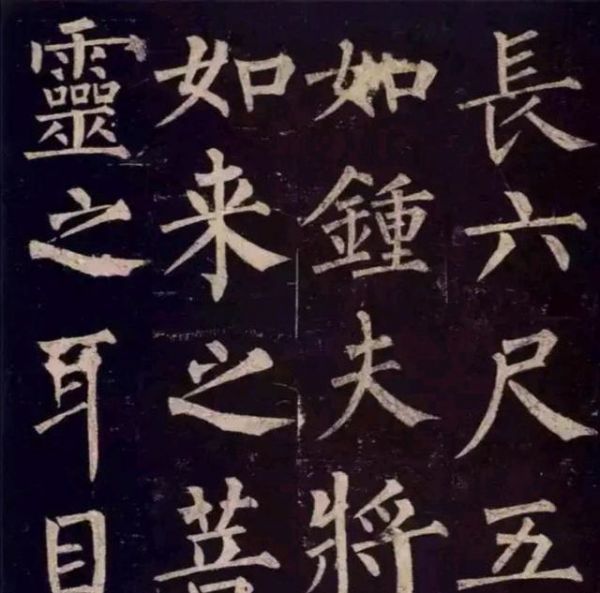 長六尺五
如鍾夫將
如来之菩
靈之耳目